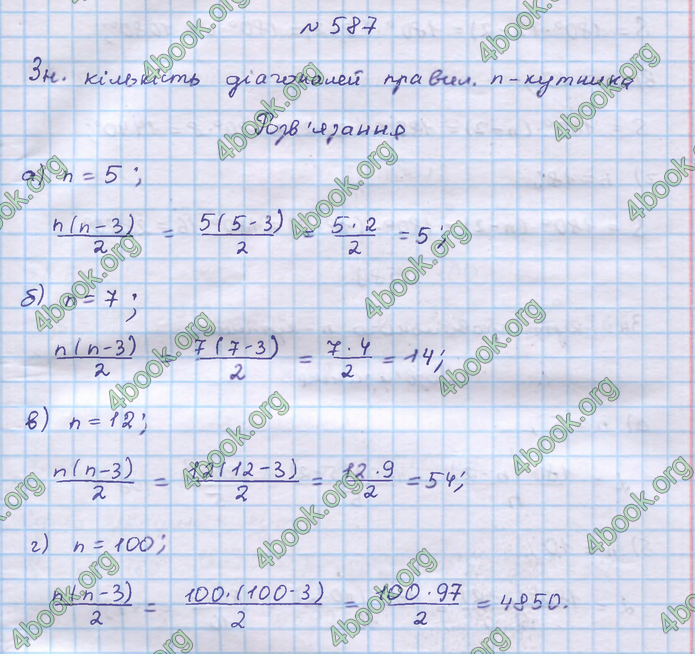 № 587
Зн. кількість діагоналей правил. n-кутника
Розв'язання
а) n = 5;
n(n-3)/2 = 5(5-3)/2 = 5·2/2 = 5;
б) n = 7;
n(n-3)/2 = 7(7-3)/2 = 7·4/2 = 14;
в) n = 12;
n(n-3)/2 = 12(12-3)/2 = 12·9/2 = 54;
г) n = 100;
n(n-3)/2 = 100·(100-3)/2 = 100·97/2 = 4850.
4book.org